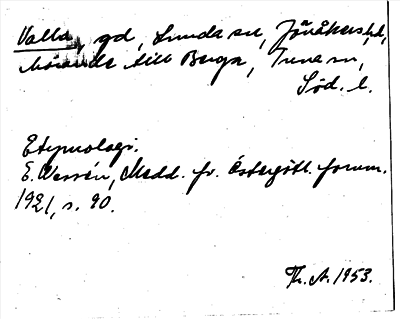 Valla, gd, Lunda sn, Jönåkers hd,
hörande till Berga, Tuna sn,
Söd. l.
Etymologi.
E. Wessén, Medd. fr. Östergötl. fornm.
1921, s. 90.
Th. A. 1953.